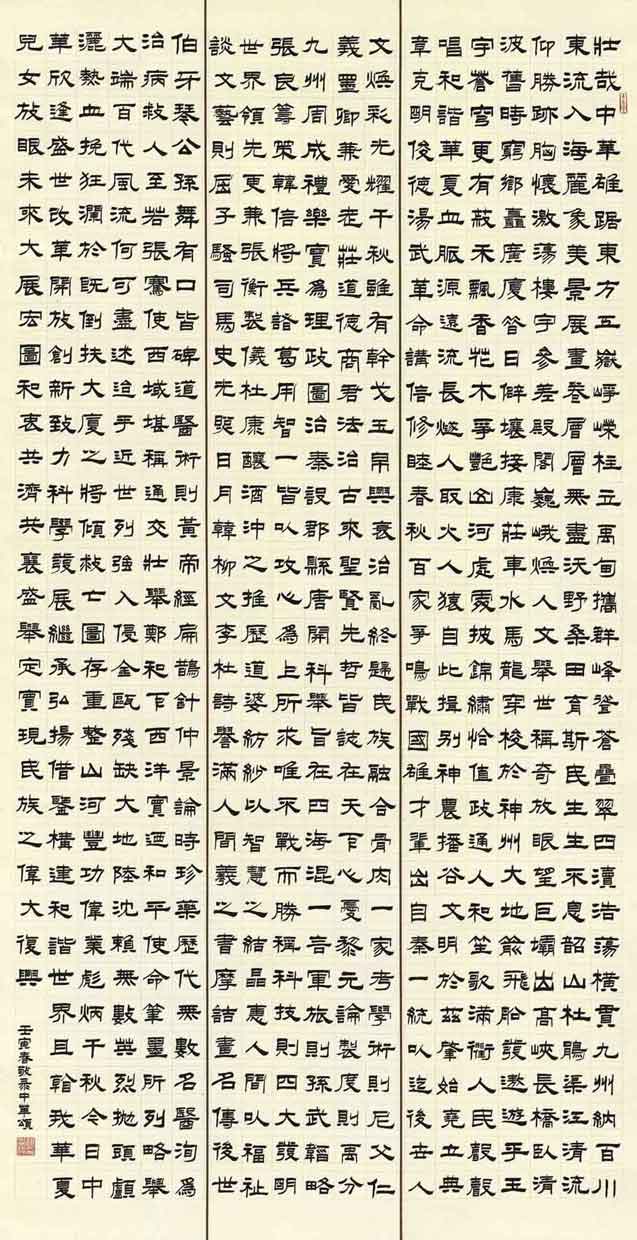 壯哉中華雄踞東方五嶽崢嶸柱立禹甸攜群峰登蒼疊翠四瀆浩蕩橫貫九州納百川
東流入海麗象美景展畫卷層層無盡沃野桑田育斯民生生不息韶山杜鵑渠江清流
仰勝跡胸懷激蕩樓宇參差殿閣巍峨煥人文舉世稱奇放眼望巨壩出高峽長橋臥清
波舊時窮鄉矗廣廈昔日僻壤接康莊車水馬龍穿梭於神州大地飛船遨遊乎玉
宇蒼穹更有菽禾飄香花木爭艷山河處處披錦繡恰值政通人和笙歌滿衢人民
唱和諧華夏血脈源遠流長燧人取火人猿自此揖别神農播谷文明於茲肇始堯立典
章克明俊德湯武革命講信修睦春秋百家爭鳴戰國雄才輩出自秦一統以迄後世人
文煥彩光耀千秋雖有幹戈玉帛興衰治亂終歸民族融合骨肉一家考學術則尼父仁
義墨卿兼愛老莊道德商君法治古來聖賢先哲皆誌在天下心憂黎元論製度則禹分
九州周成禮樂實為理政圖治秦設郡縣唐開科舉旨在四海混一言軍旅則孫武韜略
張良籌策韓信將兵諸葛用智一皆以攻心為上所求唯不戰而勝稱科技則四大發明
世界領先更兼張衡製儀杜康釀酒沖之推歷道婆紡紗以智慧之結晶惠人間以福祉
談文藝則屈子騷司馬史光照日月韓柳文李杜詩譽滿人間羲之書摩詰畫名傳後世
伯牙琴公孫舞有口皆碑道醫術則黃帝經扁鵲針仲景論時珍藥歷代無數名醫洵為
治病救人至若張騫使西域堪稱通交壯舉鄭和下西洋實迺和平使命筆墨所列略舉
大端百代風流何可盡述迨乎近世列強入侵金甌殘缺大地陸沈賴無數英烈拋頭顱
灑熱血挽狂瀾於既倒扶大廈之將傾救亡圖存重整山河豐功偉業彪炳千秋今日中
華欣逢盛世改革開放創新致力科學發展繼承弘揚借鑒構建和諧世界且翰我華夏
兒女放眼未來大展宏圖和衷共濟共襄盛舉定實現民族之偉大復興
壬寅春敬录中華頌